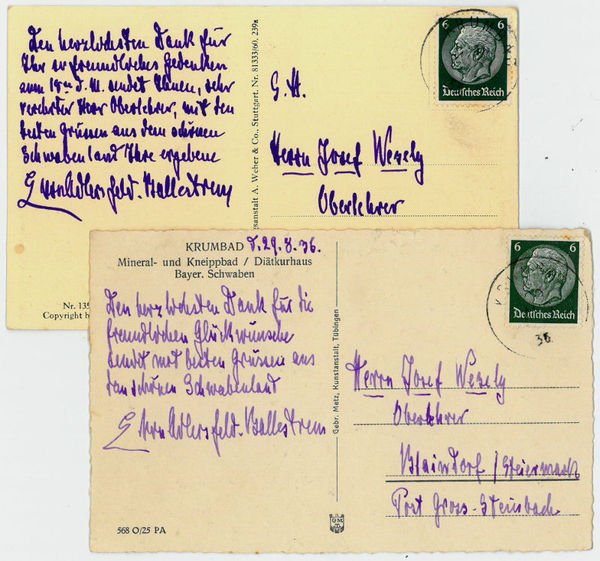 Den herzlichsten Dank für
Ihr so freundliches Gedenken
zum 18ten d. M. sendet Ihnen, sehr
verehrter Herr Oberlehrer, mit den
besten Grüssen aus dem schönen
Schwabenland Ihre ergebene
E vonAdlersfeld-Ballestrem
Nr. 135
Copyright b
gsanstalt A. Weber & Co., Stuttgart. Nr. 81333/60, 239a
6 6
Deutsches Reich
S. H.
Herrn Josef Wesely
Oberlehrer
KRUMBAD d. 29. 8. 36.
Mineral- und Kneippbad / Diätkurhaus
Bayer. Schwaben
Den herzlichsten Dank für die
freundlichen Glückwünsche
sendet mit besten Grüssen aus
dem schönen Schwabenland
E vonAdlersfeld-Ballestrem
568 O/25 PA
Gebr. Metz, Kunstanstalt, Tübingen
GMT
6 6
Deutsches Reich
36
Herrn Josef Wesely
Oberlehrer
Blaindorf / Steiermark
Post Gross-Steinbach